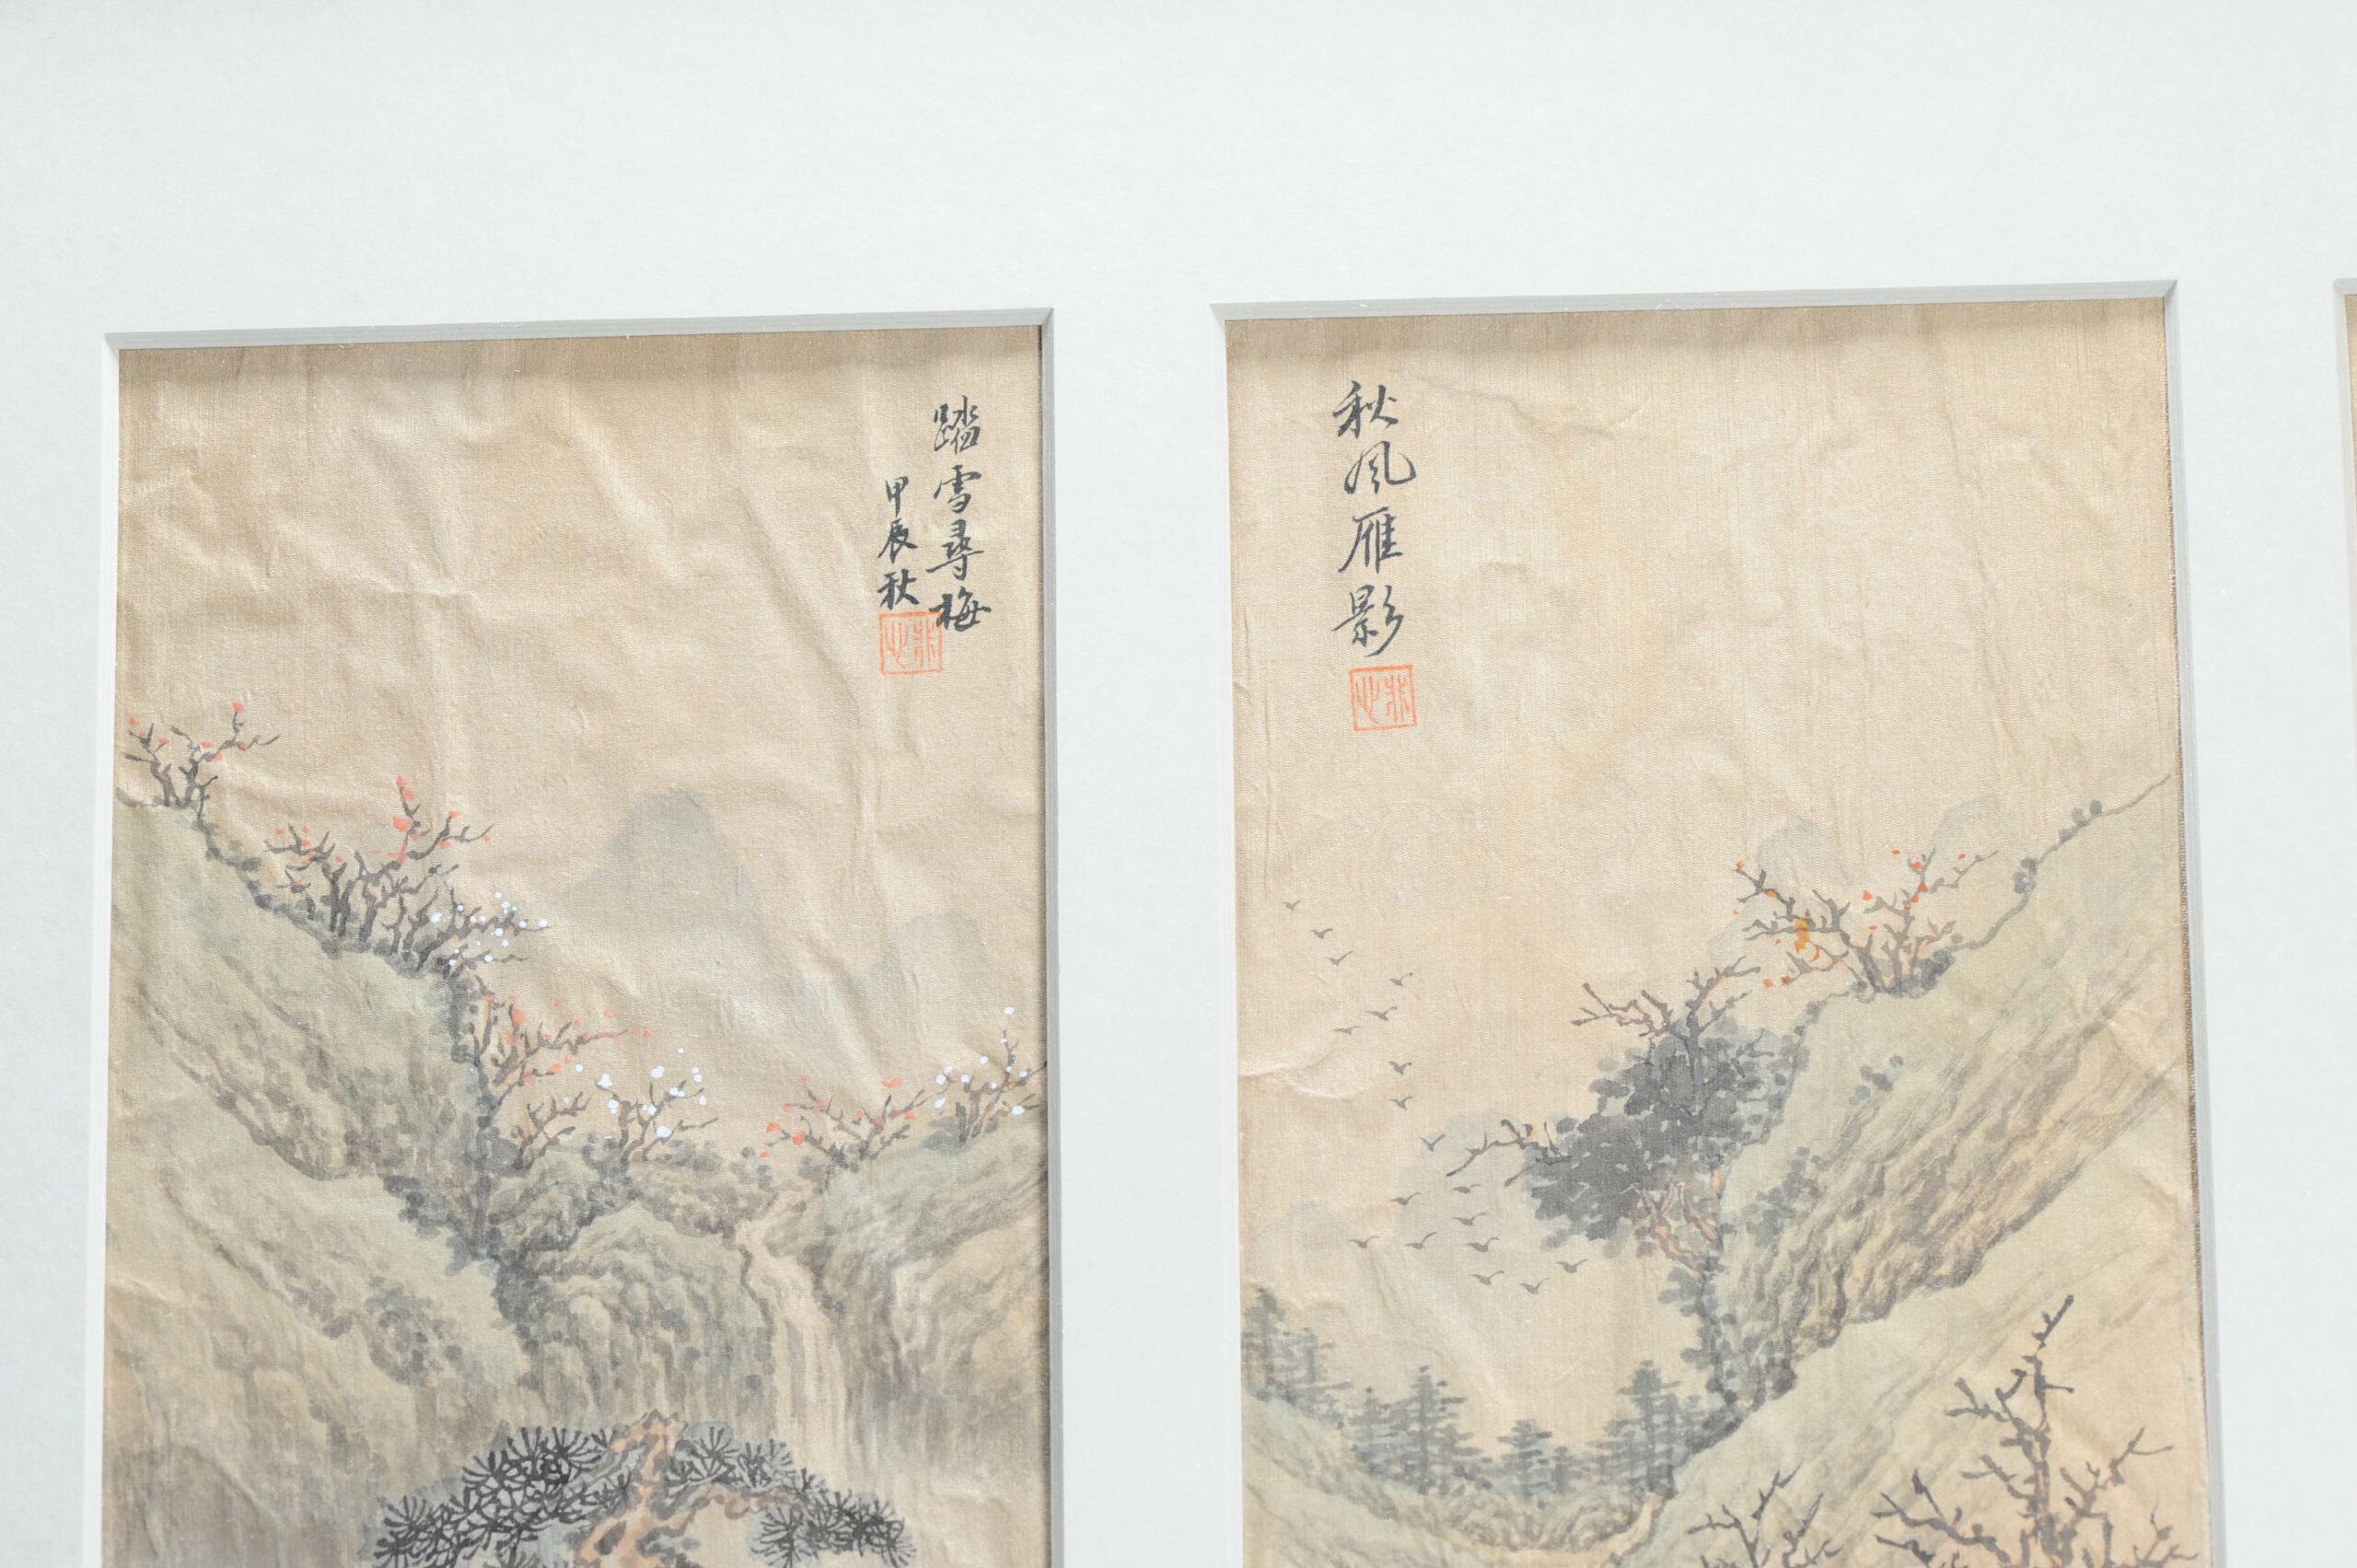 踏雪尋梅
甲辰秋
秋風雁影